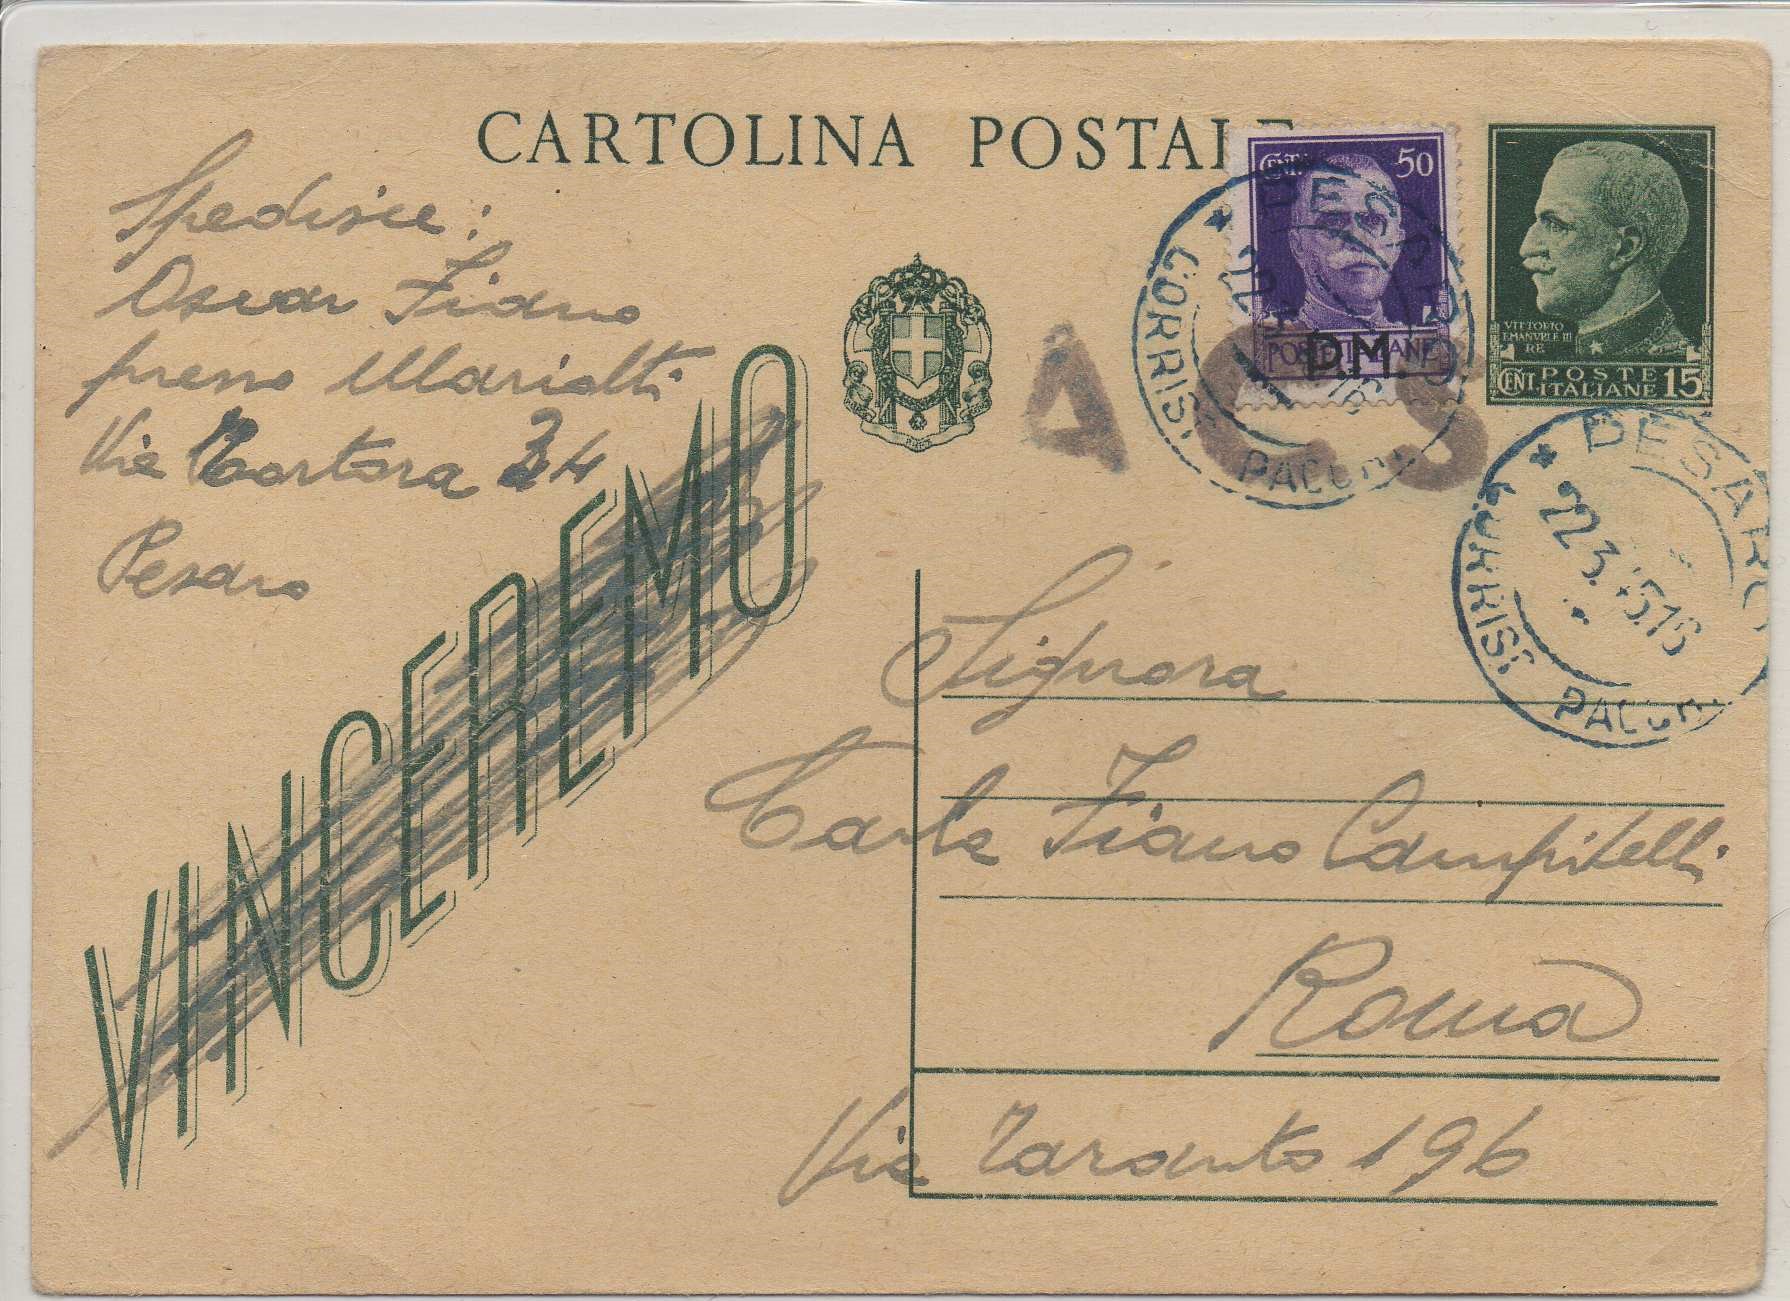 CARTOLINA POSTALE
Spedisce:
Oscar Fiano
presso Mariotti
Via Tortora 34
Pesaro
VINCEREMO
CENT. 50
POSTE ITALIANE
P.M.
VITTORIO
EMANVELE III
RE
CENT. POSTE ITALIANE 15
ACS
* PESARO
22.3. 15.16
CORRISP. PACCHI
* PESARO
22.3.45.16
CORRISP. PACCHI
Signora
Carla Fiano Campitelli
Roma
Via Taranto 196